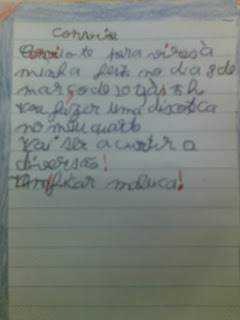 Convite
Convido te para vires à
minha festa no dia 8 de
março de 2013 às 8 h
vou fazer uma discoteca
no meu quarto
Vai ser a curtir a
diversão!
Vou ficar maluca!